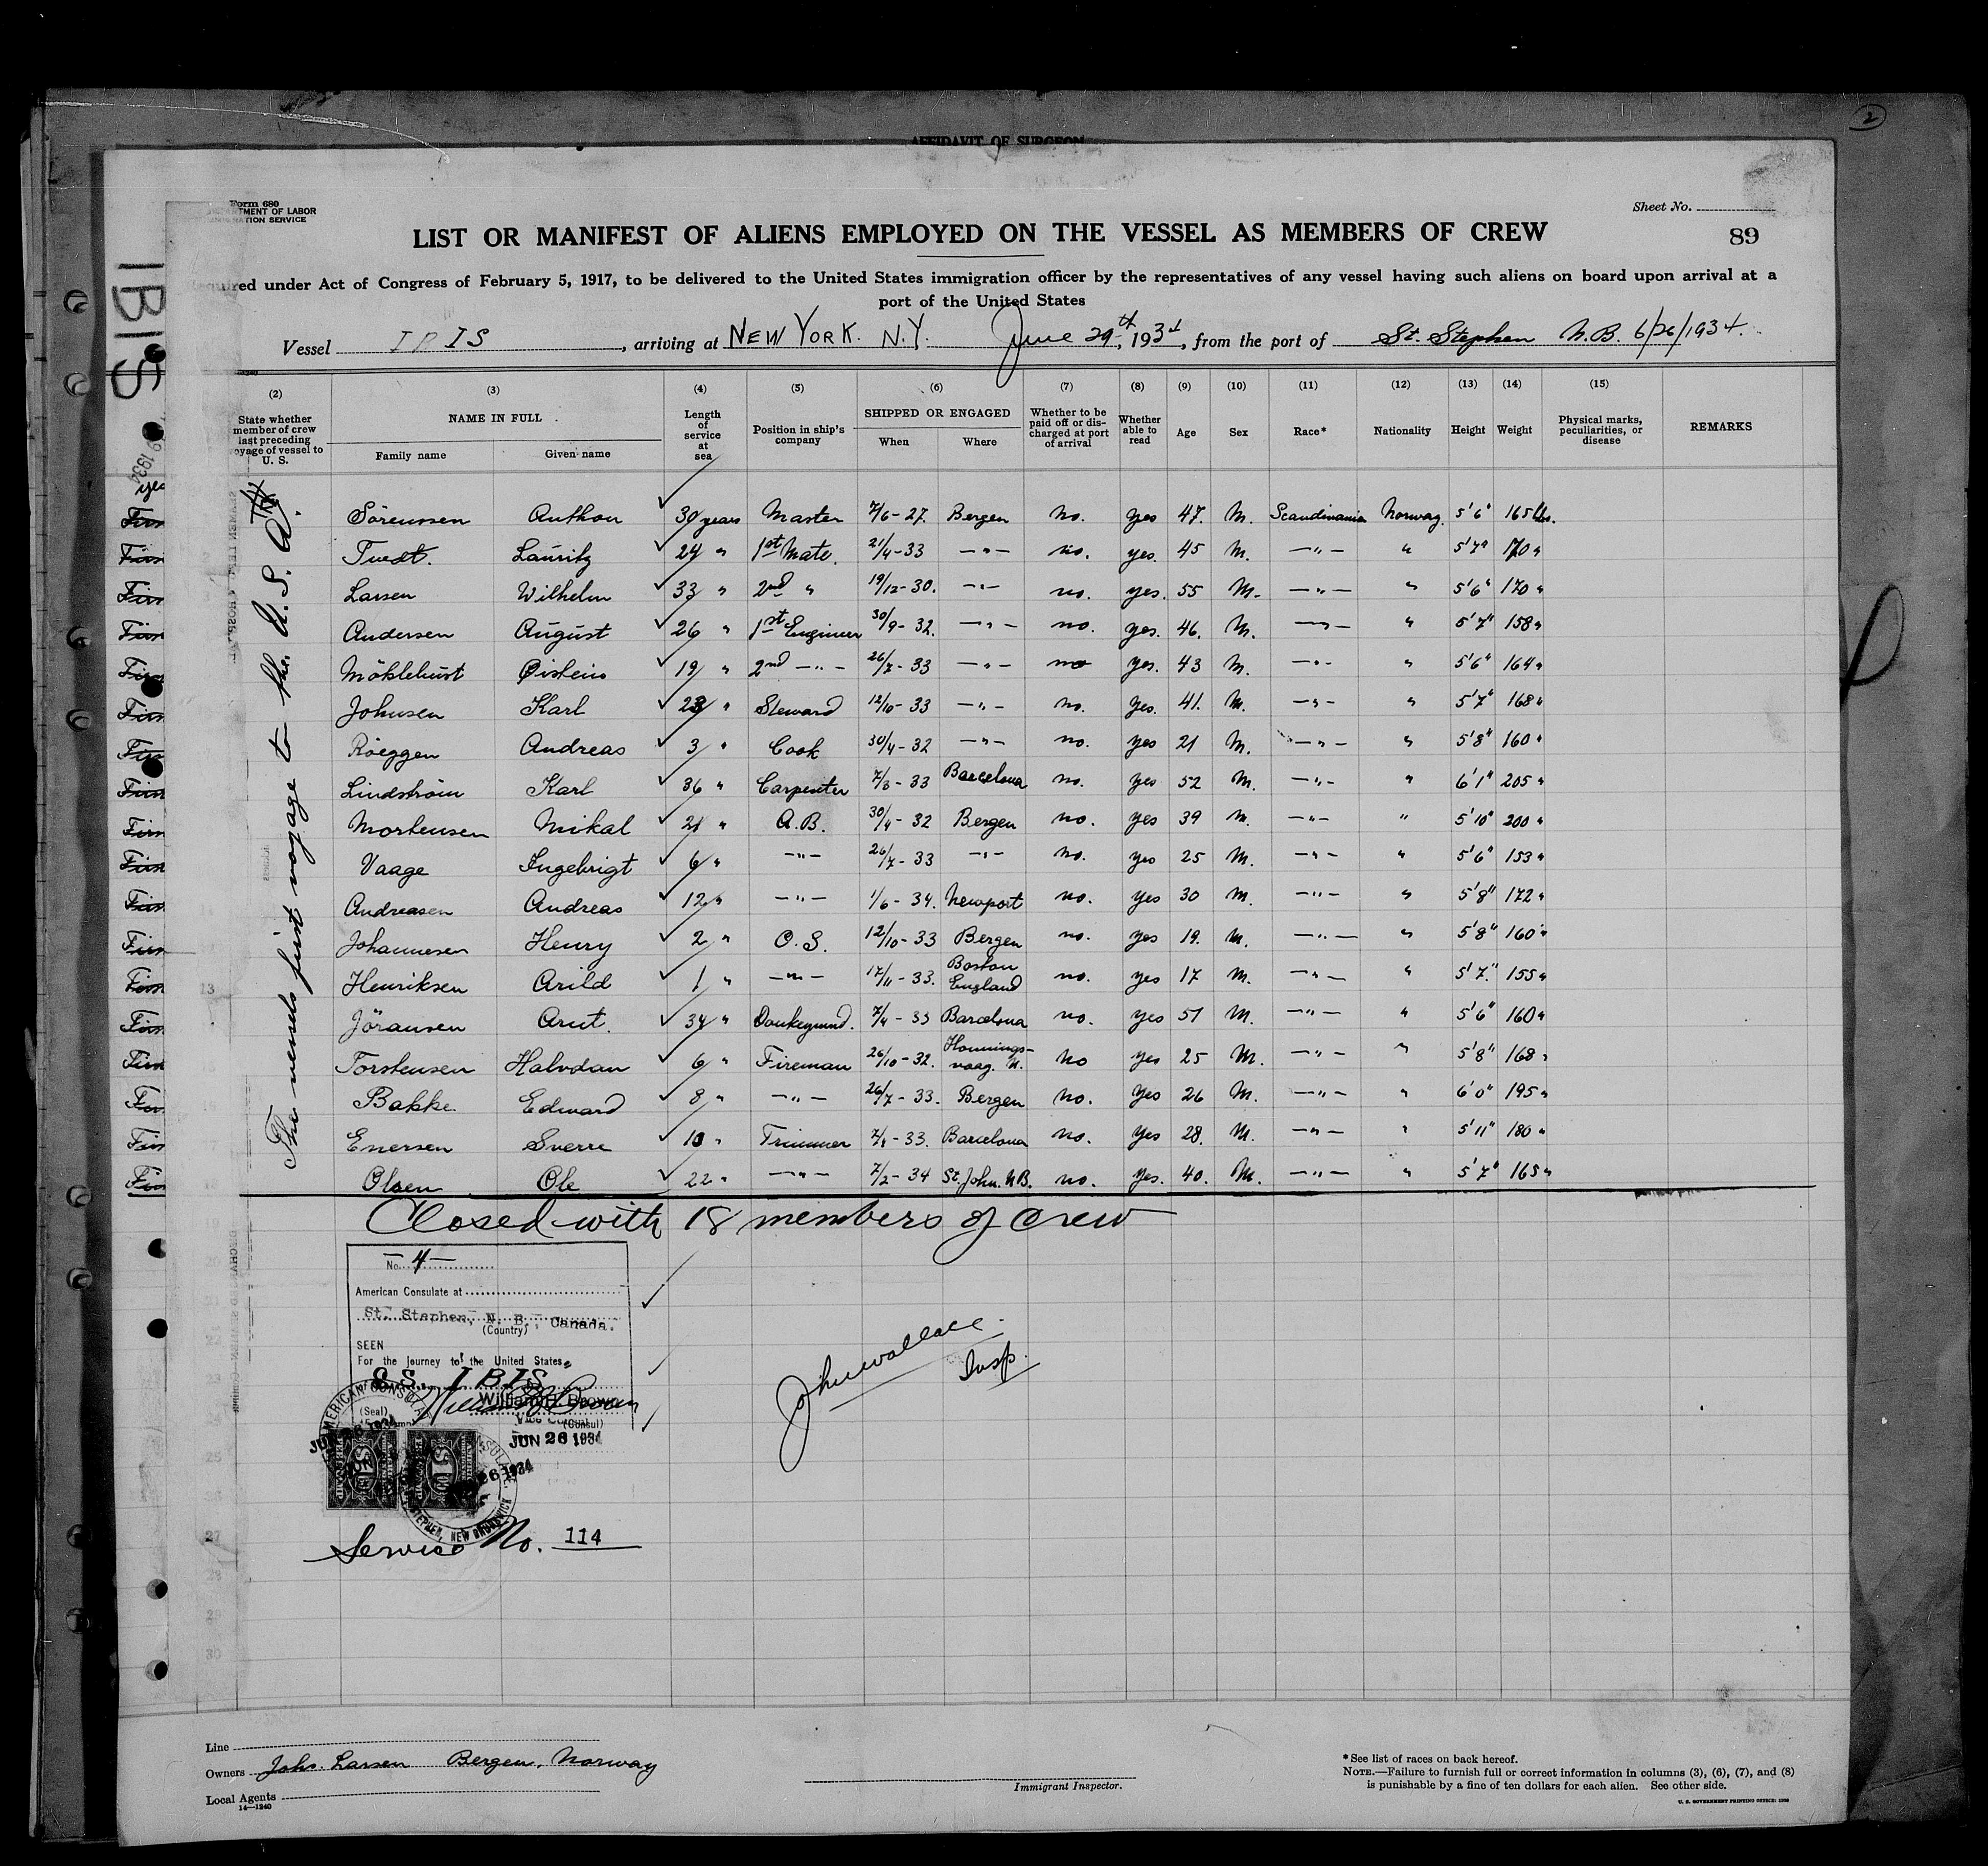 2
AFFIDAVIT OF SURGEON
Form 680
DEPARTMENT OF LABOR
IMMIGRATION SERVICE
Sheet No.
LIST OR MANIFEST OF ALIENS EMPLOYED ON THE VESSEL AS MEMBERS OF CREW
89
Required under Act of Congress of February 5, 1917, to be delivered to the United States immigration officer by the representatives of any vessel having such aliens on board upon arrival at a
port of the United States
IBIS
Vessel IBIS, arriving at NEW YORK. N.Y. June 29th, 1934, from the port of St. Stephen N.B. 6/26/1934.
(2) (3) (4) (5) (6) (7) (8) (9) (10) (11) (12) (13) (14) (15)
State whether member of crew last preceding voyage of vessel to U. S.
NAME IN FULL
Family name Given name
Length of service at sea
Position in ship's company
SHIPPED OR ENGAGED
When Where
Whether to be paid off or discharged at port of arrival
Whether able to read
Age
Sex
Race*
Nationality
Height
Weight
Physical marks, peculiarities, or disease
REMARKS
The vessels first voyage to the U.S.A.
Sörenssen Anthon 30 years Master 7/6-27. Bergen No. yes 47. M. Scandinavia Norway. 5'6" 165 lbs.
Tvedt. Lauritz 24 " 1st Mate. 21/4-33 -"- no. yes. 45 M. -"- " 5'7" 170 "
Larsen Wilhelm 33 " 2nd " 19/12-30. -"- no. yes. 55 M. -"- " 5'6" 170 "
Andersen August 26 " 1st Engineer 30/9-32. -"- no. yes. 46. M. -"- " 5'7" 158 "
Möklebust Øistein 19 " 2nd -"- 26/7-33 -"- no yes. 43 M. -"- " 5'6" 164 "
Johnsen Karl 23 " Steward 12/10-33 -"- no. yes. 41. M. -"- " 5'7" 168 "
Röeggen Andreas 3 " Cook 30/4-32 -"- no. yes 21 M. -"- " 5'8" 160 "
Lindström Karl 36 " Carpenter 7/3-33 Barcelona no. yes 52 M. -"- " 6'1" 205 "
Mortensen Mikal 21 " A.B. 30/4-32 Bergen no. yes 39 M. -"- " 5'10" 200 "
Vaage Ingebrigt 6 " -"- 26/7-33 -"- no. yes 25 M. -"- " 5'6" 153 "
Andreasen Andreas 12 " -"- 1/6-34. Newport no. yes 30 M. -"- " 5'8" 172 "
Johannesen Henry 2 " O.S. 12/10-33 Bergen no. yes 19. M. -"- " 5'8" 160 "
Henriksen Arild 1 " -"- 17/11-33. Boston England no. yes 17 M. -"- " 5'7." 155 "
Jöransen Arnt. 34 " Donkeymand. 7/4-33 Barcelona no. yes 51 M. -"- " 5'6" 160 "
Torstensen Halvdan 6 " Fireman 26/10-32. Honningsvaag. N. no yes 25 M. -"- " 5'8" 168 "
Bakke. Edward 8 " -"- 26/7-33. Bergen no. yes 26 M. -"- " 6'0" 195 "
Enersen Sverre 10 " Trimmer -33. Barcelona no. yes 28. M. -"- " 5'11" 180 "
Olsen Ole 22 " -"- 7/2-34 St. John. N.B. no. yes. 40. M. -"- " 5'7" 165 "
Closed with 18 members of crew
No. 4
American Consulate at
St. Stephen, N. B., Canada.
(Country)
SEEN
For the journey to the United States
S.S. IBIS
William Brown
(Seal)
Vice (Consul)
JUN 26 1934
AMERICAN CONSULATE
ST. STEPHEN, NEW BRUNSWICK
Service No. 114
John Wallace
Insp.
13
19
20
21
22
23
25
27
28
29
30
Line
Owners Johs. Larsen Bergen, Norway
Local Agents
14—1240
Immigrant Inspector.
* See list of races on back hereof.
NOTE.—Failure to furnish full or correct information in columns (3), (6), (7), and (8)
is punishable by a fine of ten dollars for each alien. See other side.
U. S. GOVERNMENT PRINTING OFFICE: